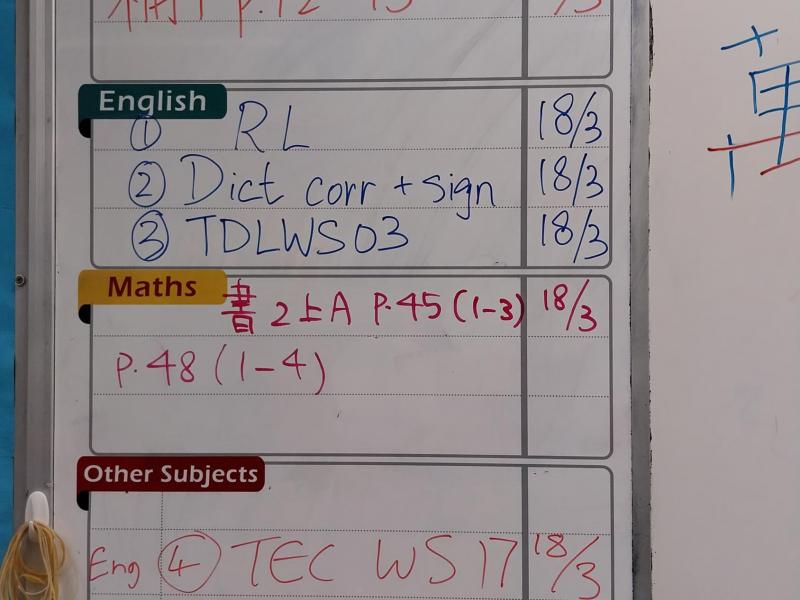 English
① RL 18/3
② Dict corr + sign 18/3
③ TDLWS03 18/3
Maths
書 2上A P.45 (1-3) 18/3
P.48 (1-4)
Other Subjects
Eng ④ TEC WS 17 18/3